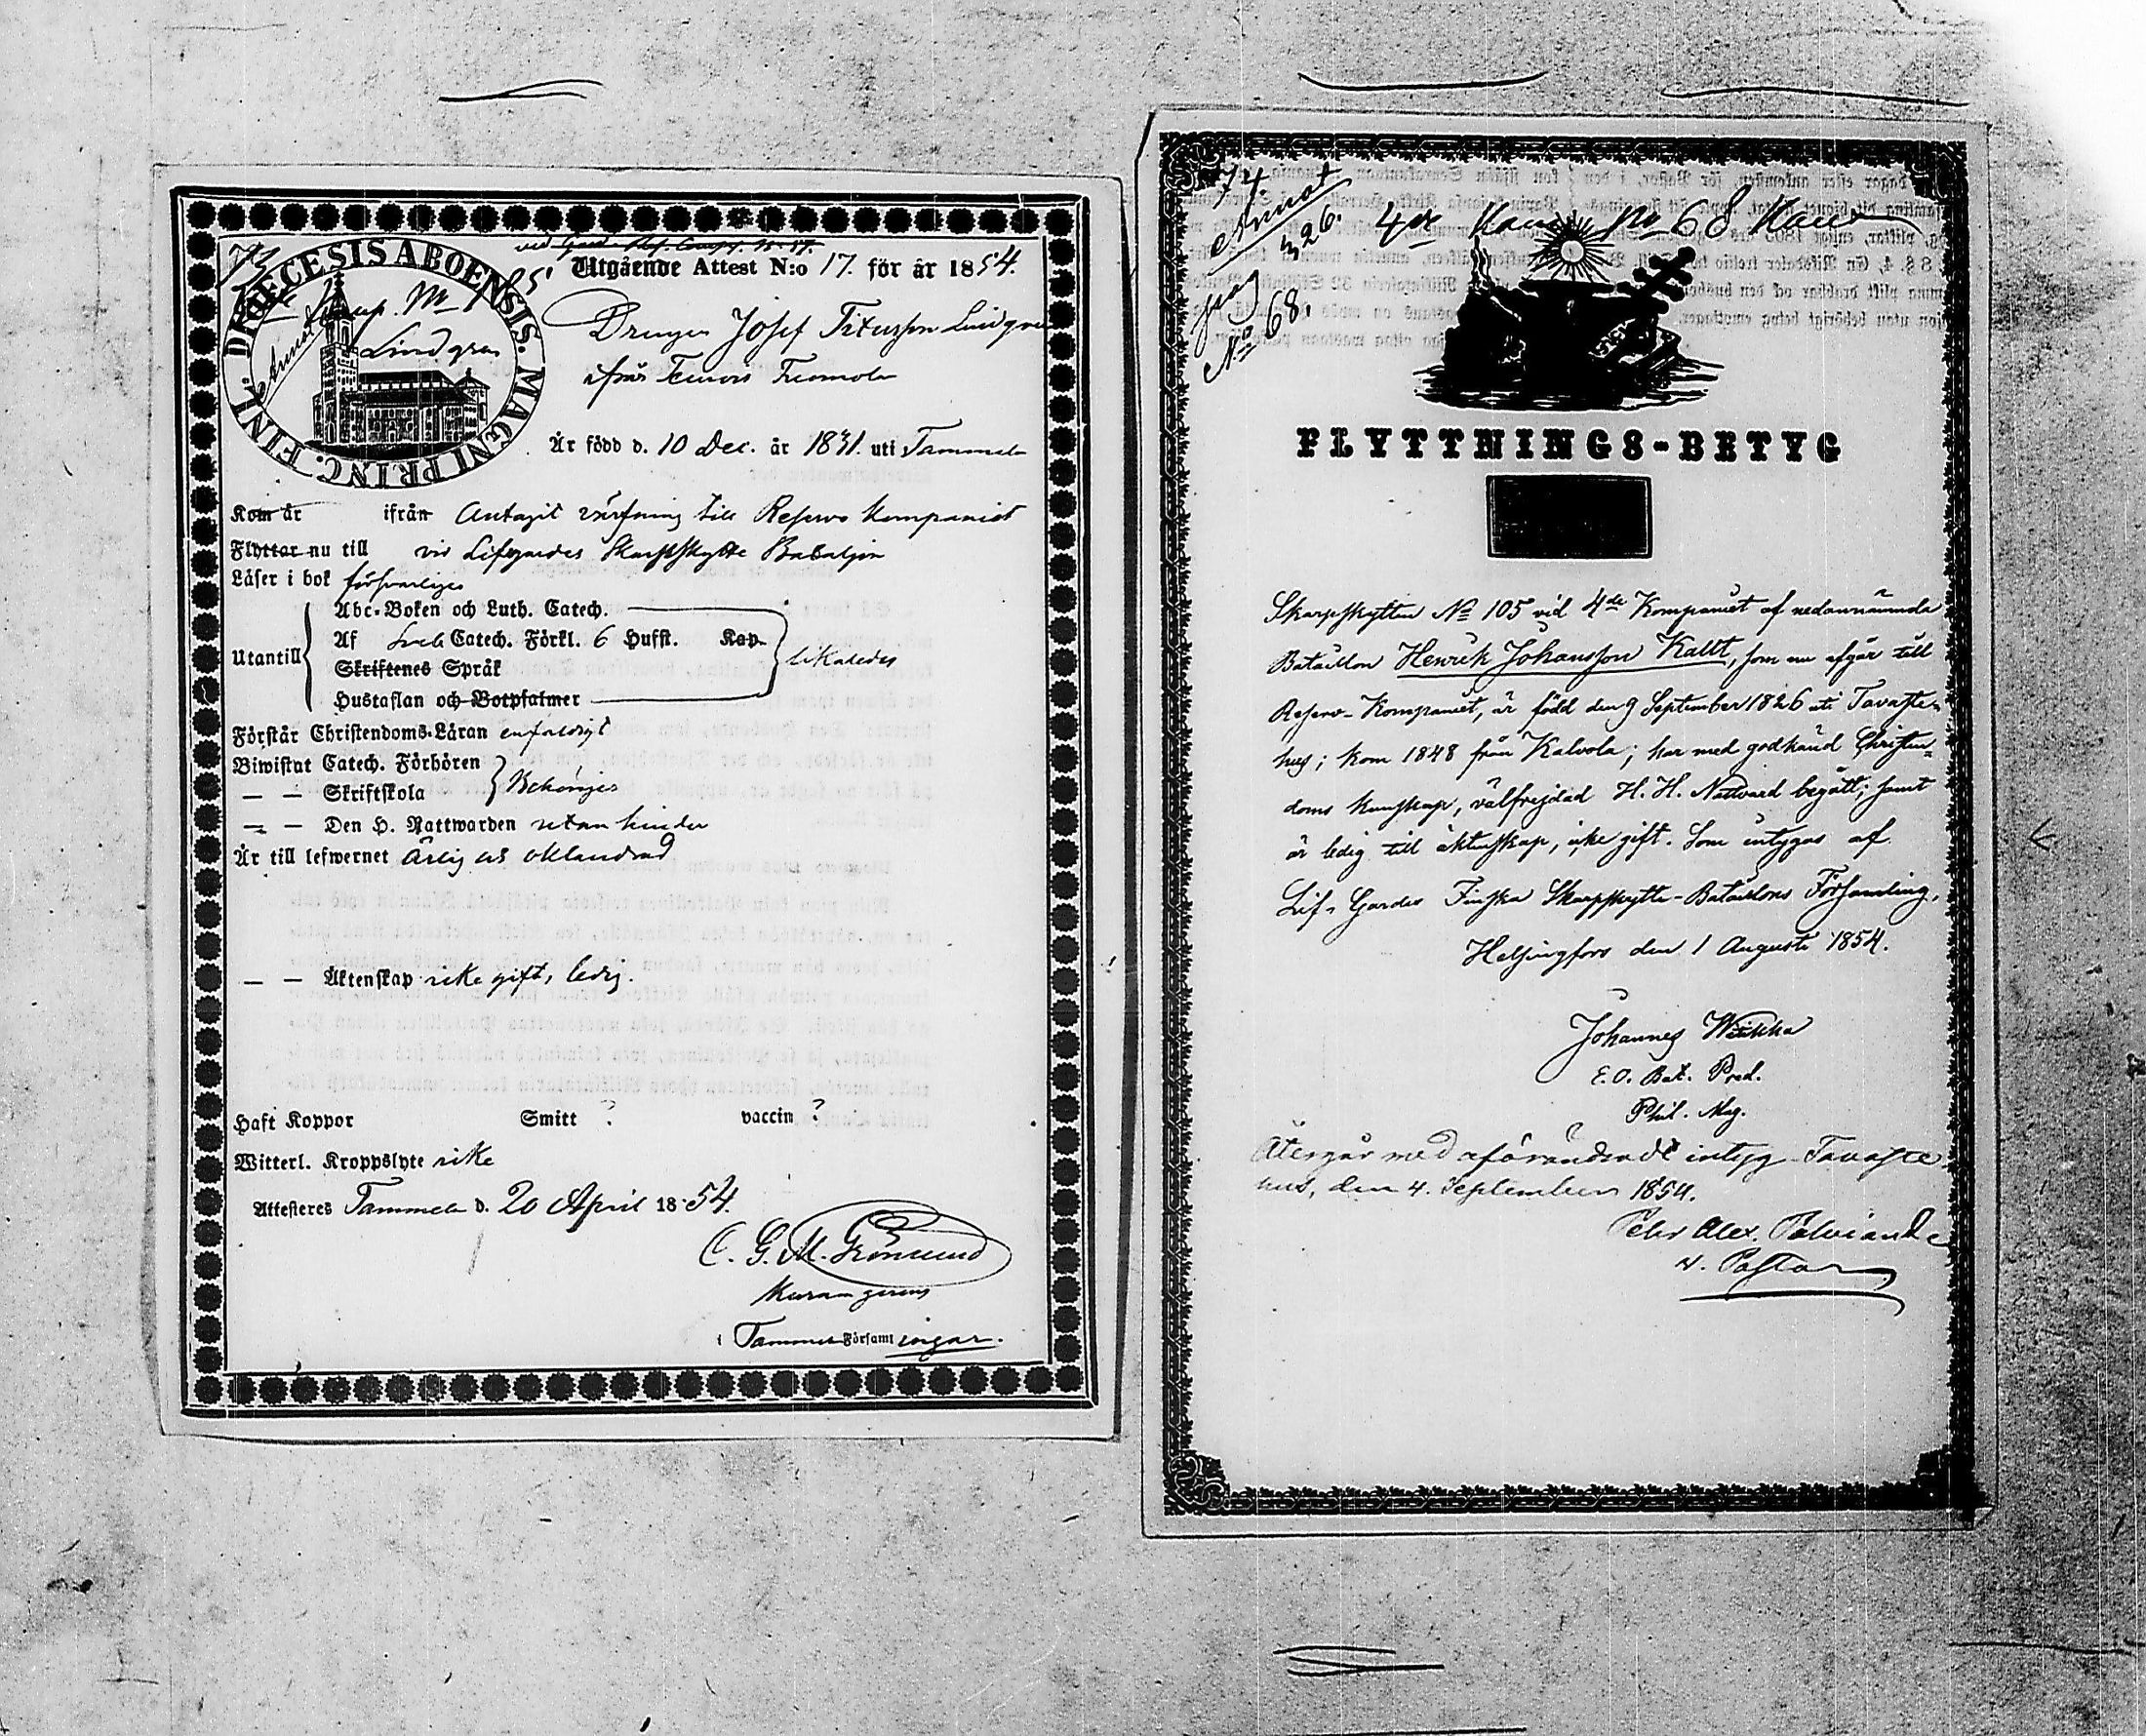 73
DIOECESIS ABOENSIS. MAGNI PRINC. FINL.
Lindgren
Utgående Attest N:o 17. för år 1854.
Drengen Josef Titusson Lindgren
ifrån
Är född d. 10 Dec. år 1831. uti Tammela
Kom år ifrån Antagit värfning till Reserv Kompaniet
Flyttar nu till vid Lifgardes Skarpskytte Bataljon
Läser i bok försvarligen
Abc-Boken och Luth. Catech.
Utantill Af Catech. Förkl. 6 Hufst. Kap.
Skriftenes Språk
Hustaflan och Botpsalmer
likaledes
Förstår Christendoms-Läran enfaldigt
Biwistat Catech. Förhören
— — Skriftskola
Behörigen
— — Den H. Nattwarden utan hinder
Är till lefwernet ärlig och oklandrad
— — Äktenskap icke gift, ledig.
Haft Koppor Smitt ? vaccin ?
Witterl. Kroppslyte icke
Attesteres Tammela d. 20 April 1854.
C. G. M. Grönlund
i Tammela Församlingar.
74.
Annot
326.
No 68.
No 68
FLYTTNINGS-BETYG
Skarpskytten No 105 vid 4de Kompaniet af nedannämnda
Bataillon Henrik Johansson Kallt, som nu afgår till
Reserv-Kompaniet, är född den 9 September 1826 uti Tavaste-
hus; kom 1848 från Kalvola; har med godkänd Christen-
doms kunskap, välfrejdad H. H. Nattvard begått; samt
är ledig till äktenskap, icke gift. Som intygas af
Lif-Gardes Finska Skarpskytte-Bataillons Församling.
Helsingfors den 1 Augusti 1854.
Johannes
E. O. Bat. Pred.
Phil. Mag.
Återgår med intyg. Tavaste-
hus, den 4. September 1854.
Petr. Alex.
v. Pastor